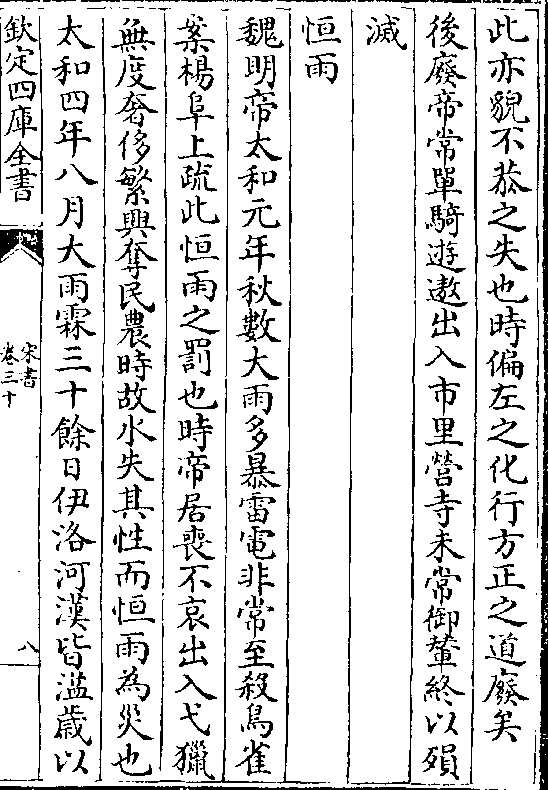 此亦貌不恭之失也時偏左之化行方正之道廢矣
後廢帝常單騎遊遨出入市里營寺未常御輦終以殞
滅
恒雨
魏明帝太和元年秋數大雨多暴雷電非常至殺鳥雀
案楊阜上疏此恒雨之罰也時帝居喪不哀出入弋獵
無度奢侈繁興奪民農時故水失其性而恒雨為災也
太和四年八月大雨霖三十餘日伊洛河漢皆溢歲以
欽定四庫全書
宋書
卷三十
八